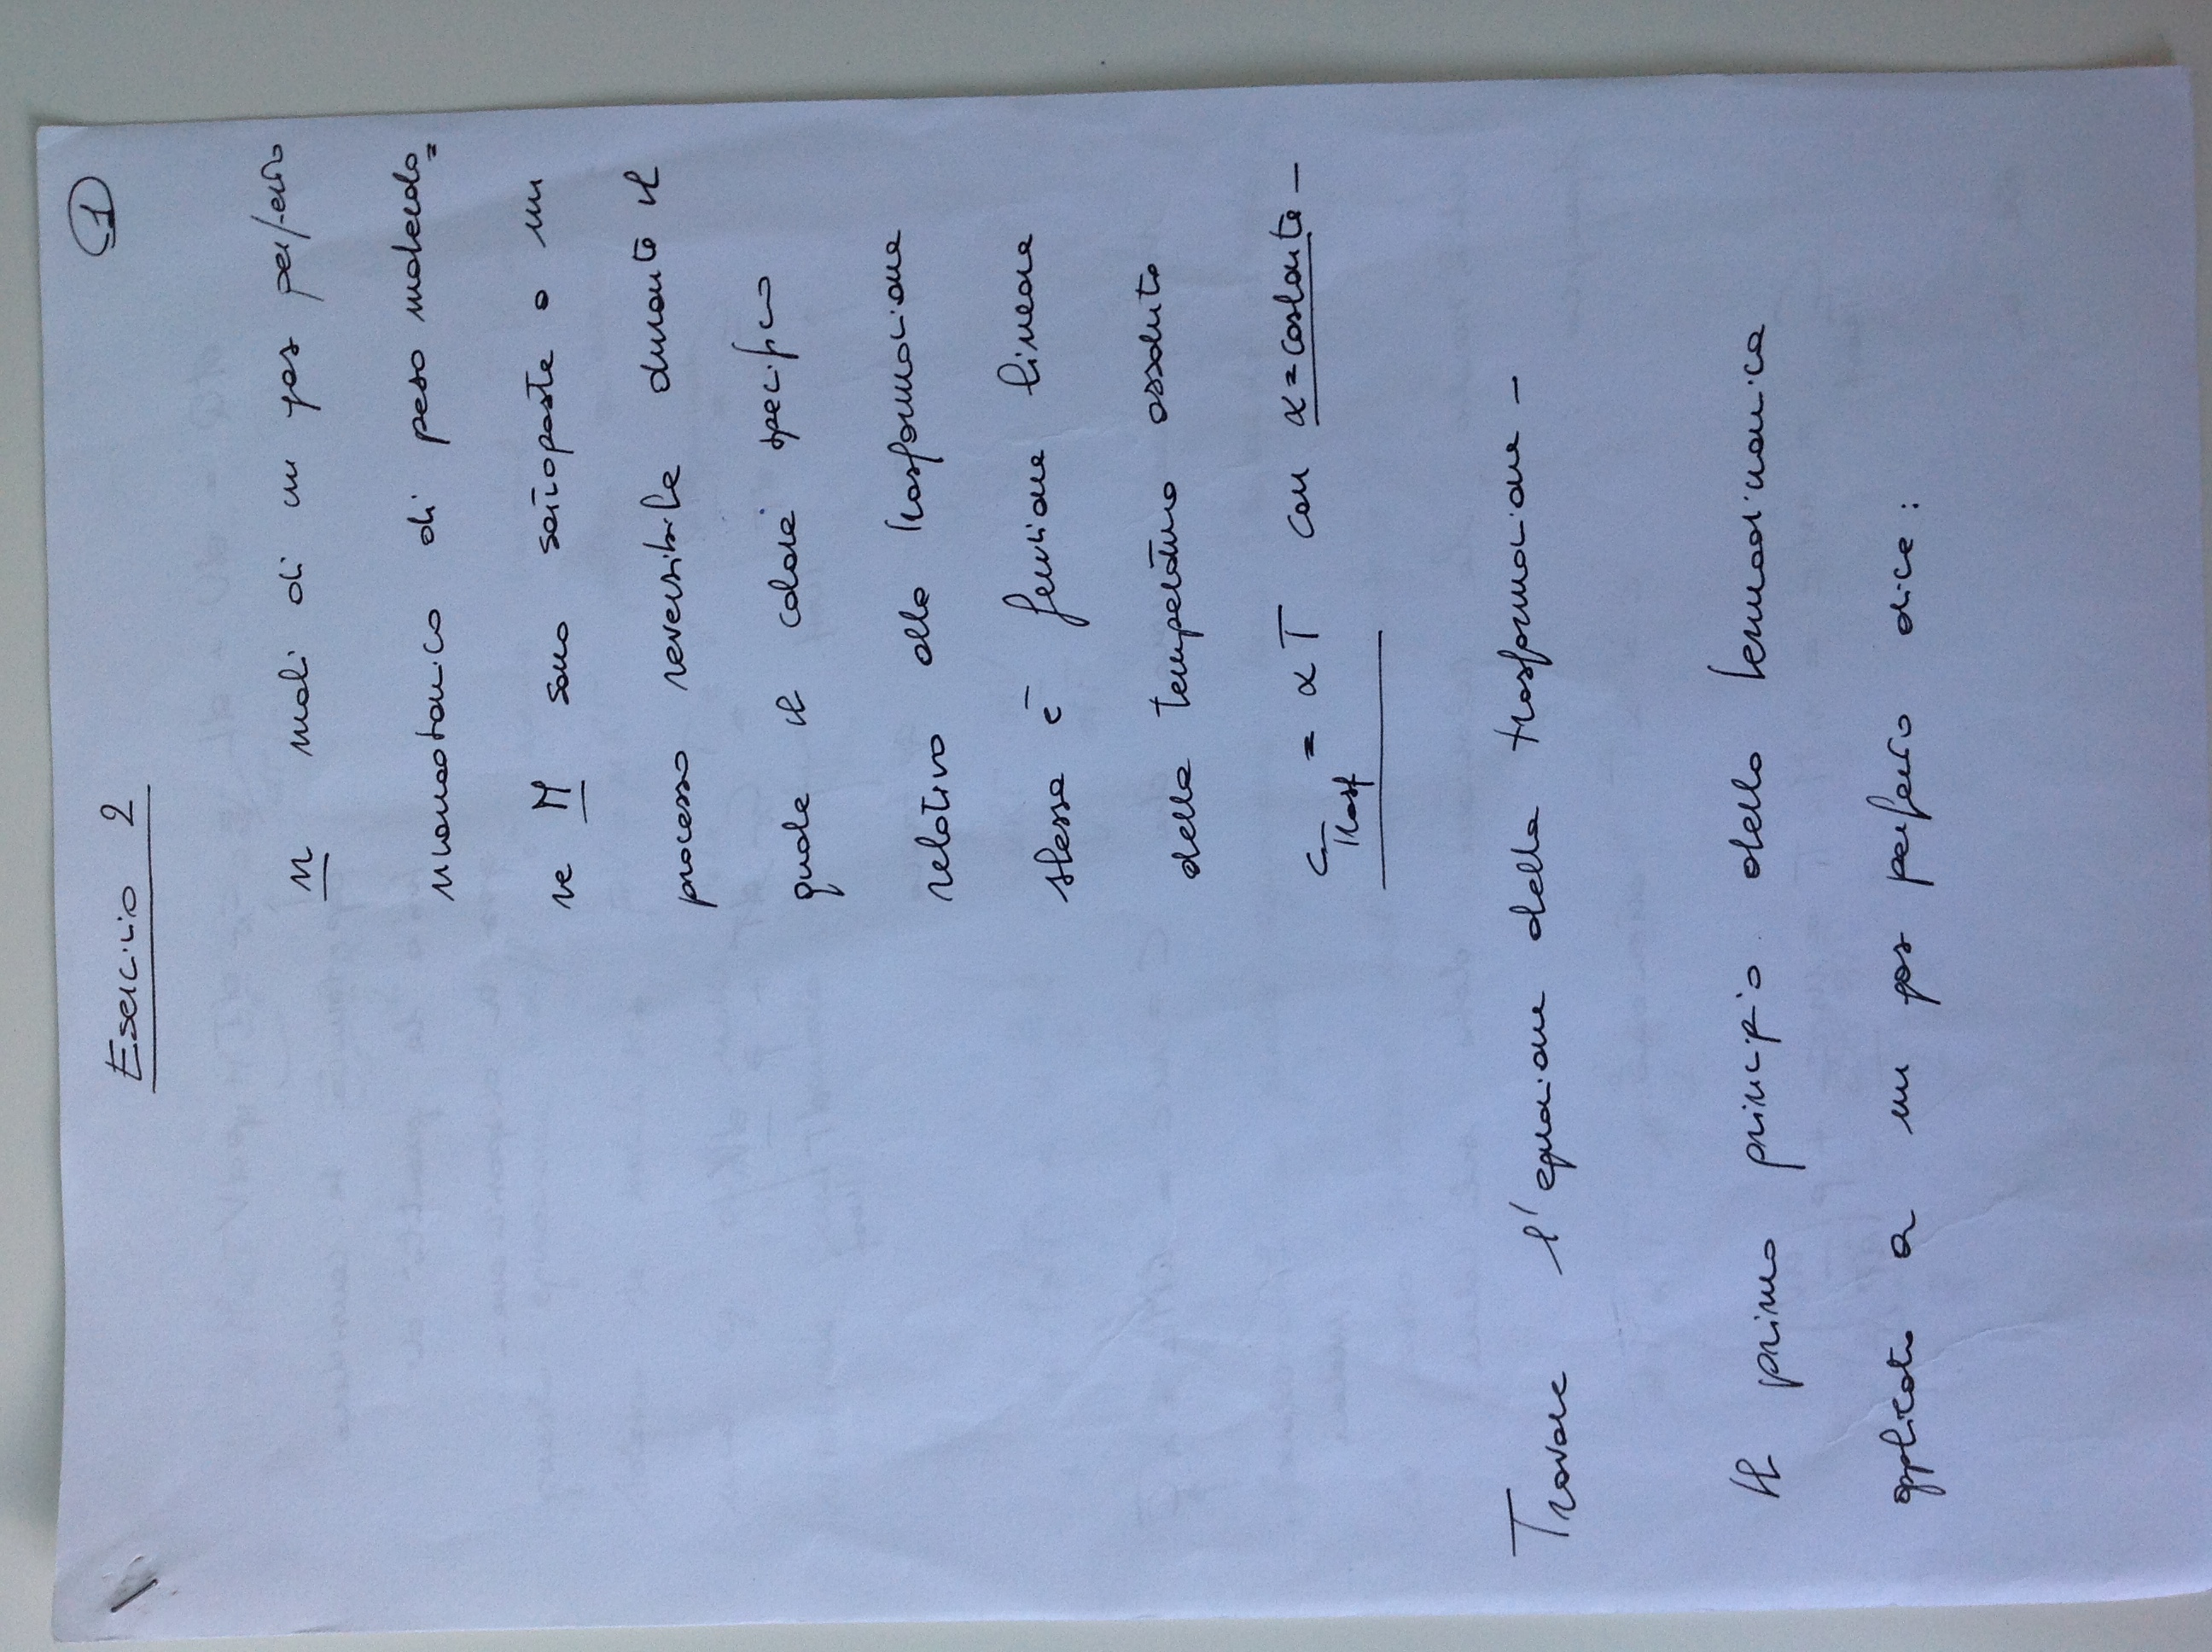 1
Esercizio 2
n moli di un gas perfetto
monoatomico di peso molecola=
re M sono sottoposte a un
processo reversibile durante il
quale il calore specifico
relativo alla trasformazione
stessa è funzione lineare
della temperatura assoluta
c_trasf = αT con α=costante -
Trovare l'equazione della trasformazione -
Il primo principio della termodinamica
applicato a un gas perfetto dice: